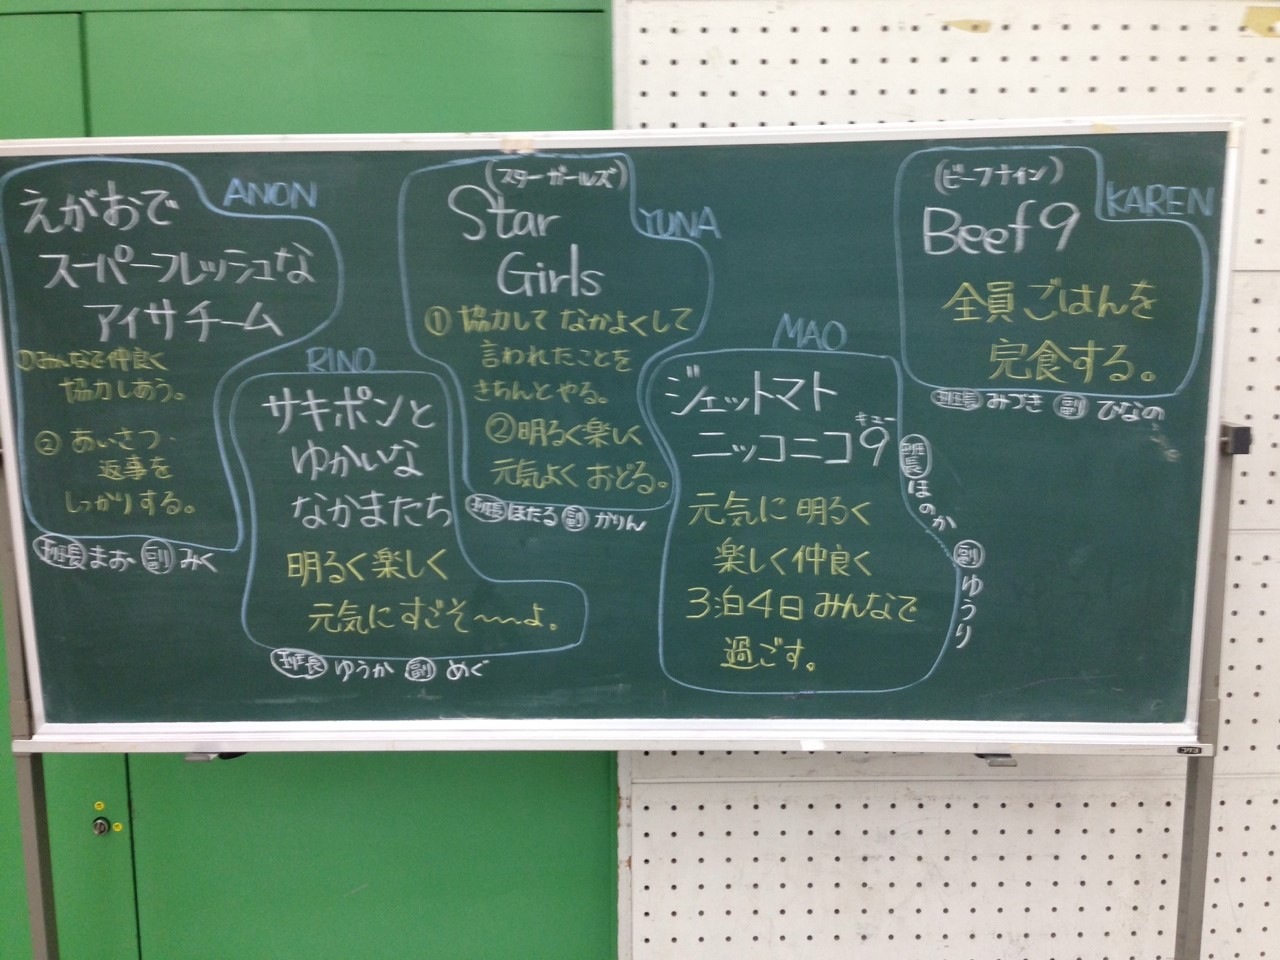 ANON
えがおで
スーパーフレッシュな
アイサチーム
①みんなで仲良く
協力しあう。
② あいさつ・
返事を
しっかりする。
班長 まお 副 みく
RINO
サキポンと
ゆかいな
なかまたち
明るく楽しく
元気にすごそ〜〜よ。
班長 ゆうか 副 めぐ
(スターガールズ)
YUNA
Star
Girls
① 協力して なかよくして
言われたことを
きちんとやる。
②明るく楽しく
元気よく おどる。
班長 ほたる 副 かりん
MAO
ジェットマト
ニッコニコ9
キュー
元気に 明るく
楽しく仲良く
3泊4日 みんなで
過ごす。
班長 ほのか
副 ゆうり
(ビーフナイン)
KAREN
Beef9
全員 ごはんを
完食する。
班長 みづき 副 ひなの
コクヨ